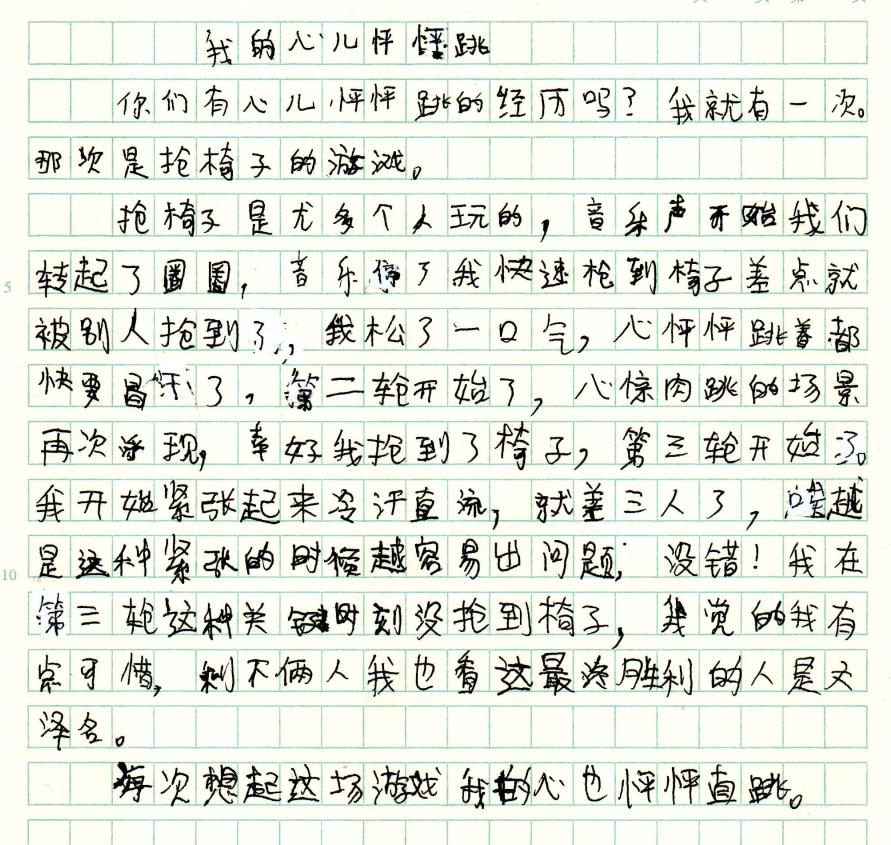 我的心儿怦怦跳
你们有心儿怦怦跳的经历吗？我就有一次。
那次是抢椅子的游戏。
抢椅子是尤多个人玩的，音乐声开始我们
转起了圈圈，音乐停了我快速枪到椅子差点就
被别人抢到了，我松了一口气，心怦怦跳着都
快要冒乐了，第二轮开始了，心惊肉跳的场景
再次浮现，幸好我抢到了椅子，第三轮开始了。
我开始紧张起来冷汗直流，就差三人了，越
是这种紧张的时候越容易出问题，没错！我在
第三轮这种关键时刻没抢到椅子，我觉的我有
点可惜，剩下俩人我也看这最终胜利的人是文
泽名。
每次想起这场游戏我的心也怦怦直跳。
5
10